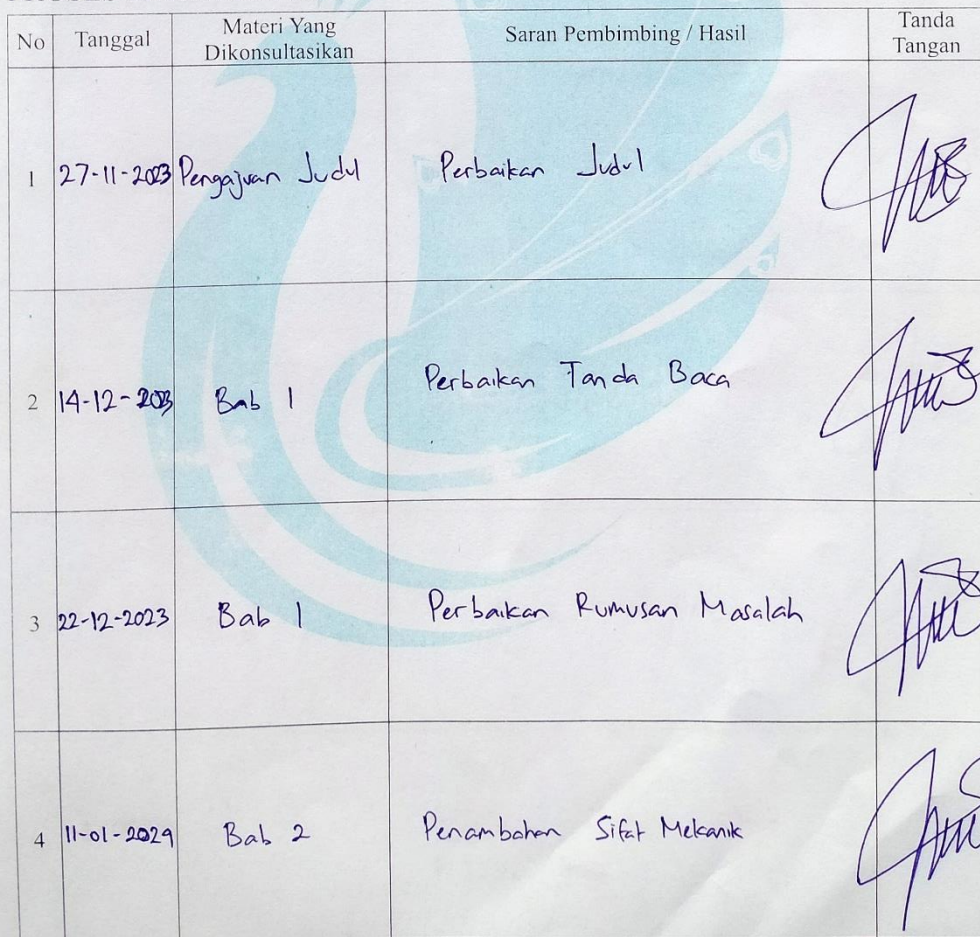 No Tanggal Materi Yang Dikonsultasikan Saran Pembimbing / Hasil Tanda Tangan
1 27-11-2023 Pengajuan Judul Perbaikan Judul
2 14-12-2023 Bab 1 Perbaikan Tanda Baca
3 22-12-2023 Bab 1 Perbaikan Rumusan Masalah
4 11-01-2024 Bab 2 Penambahan Sifat Mekanik